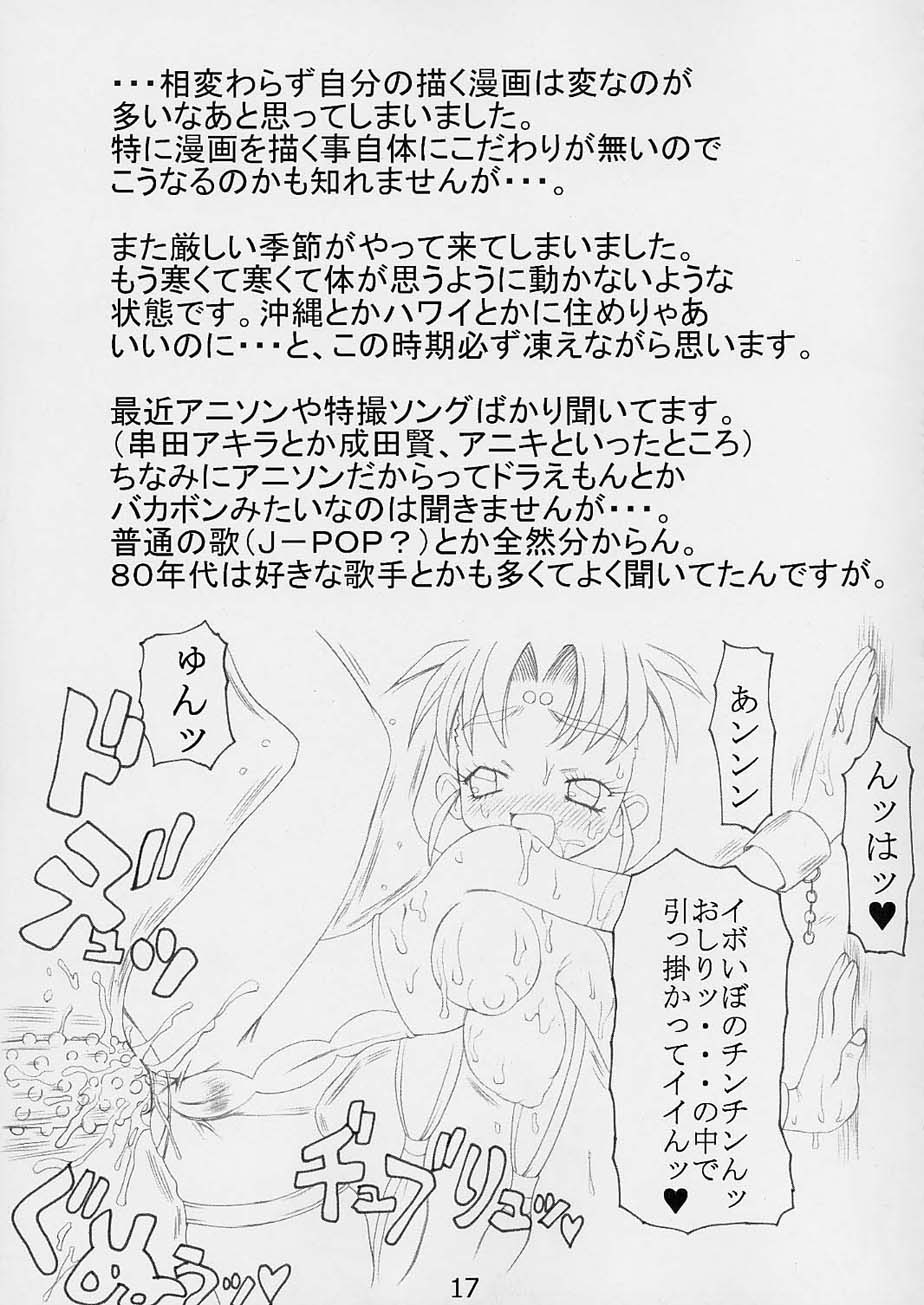 ・・・相変わらず自分の描く漫画は変なのが
多いなあと思ってしまいました。
特に漫画を描く事自体にこだわりが無いので
こうなるのかも知れませんが・・・。
また厳しい季節がやって来てしまいました。
もう寒くて寒くて体が思うように動かないような
状態です。沖縄とかハワイとかに住めりゃあ
いいのに・・・と、この時期必ず凍えながら思います。
最近アニソンや特撮ソングばかり聞いてます。
（串田アキラとか成田賢、アニキといったところ）
ちなみにアニソンだからってドラえもんとか
バカボンみたいなのは聞きませんが・・・。
普通の歌（J－POP？）とか全然分からん。
８０年代は好きな歌手とかも多くてよく聞いてたんですが。
17